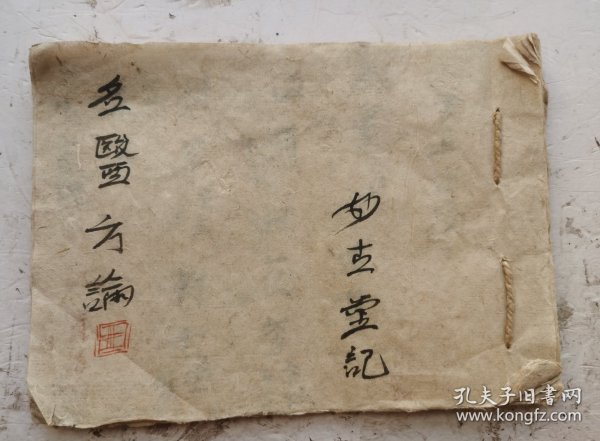 妙堂記
名醫方論
王
孔夫子旧书网
www.kongfz.com